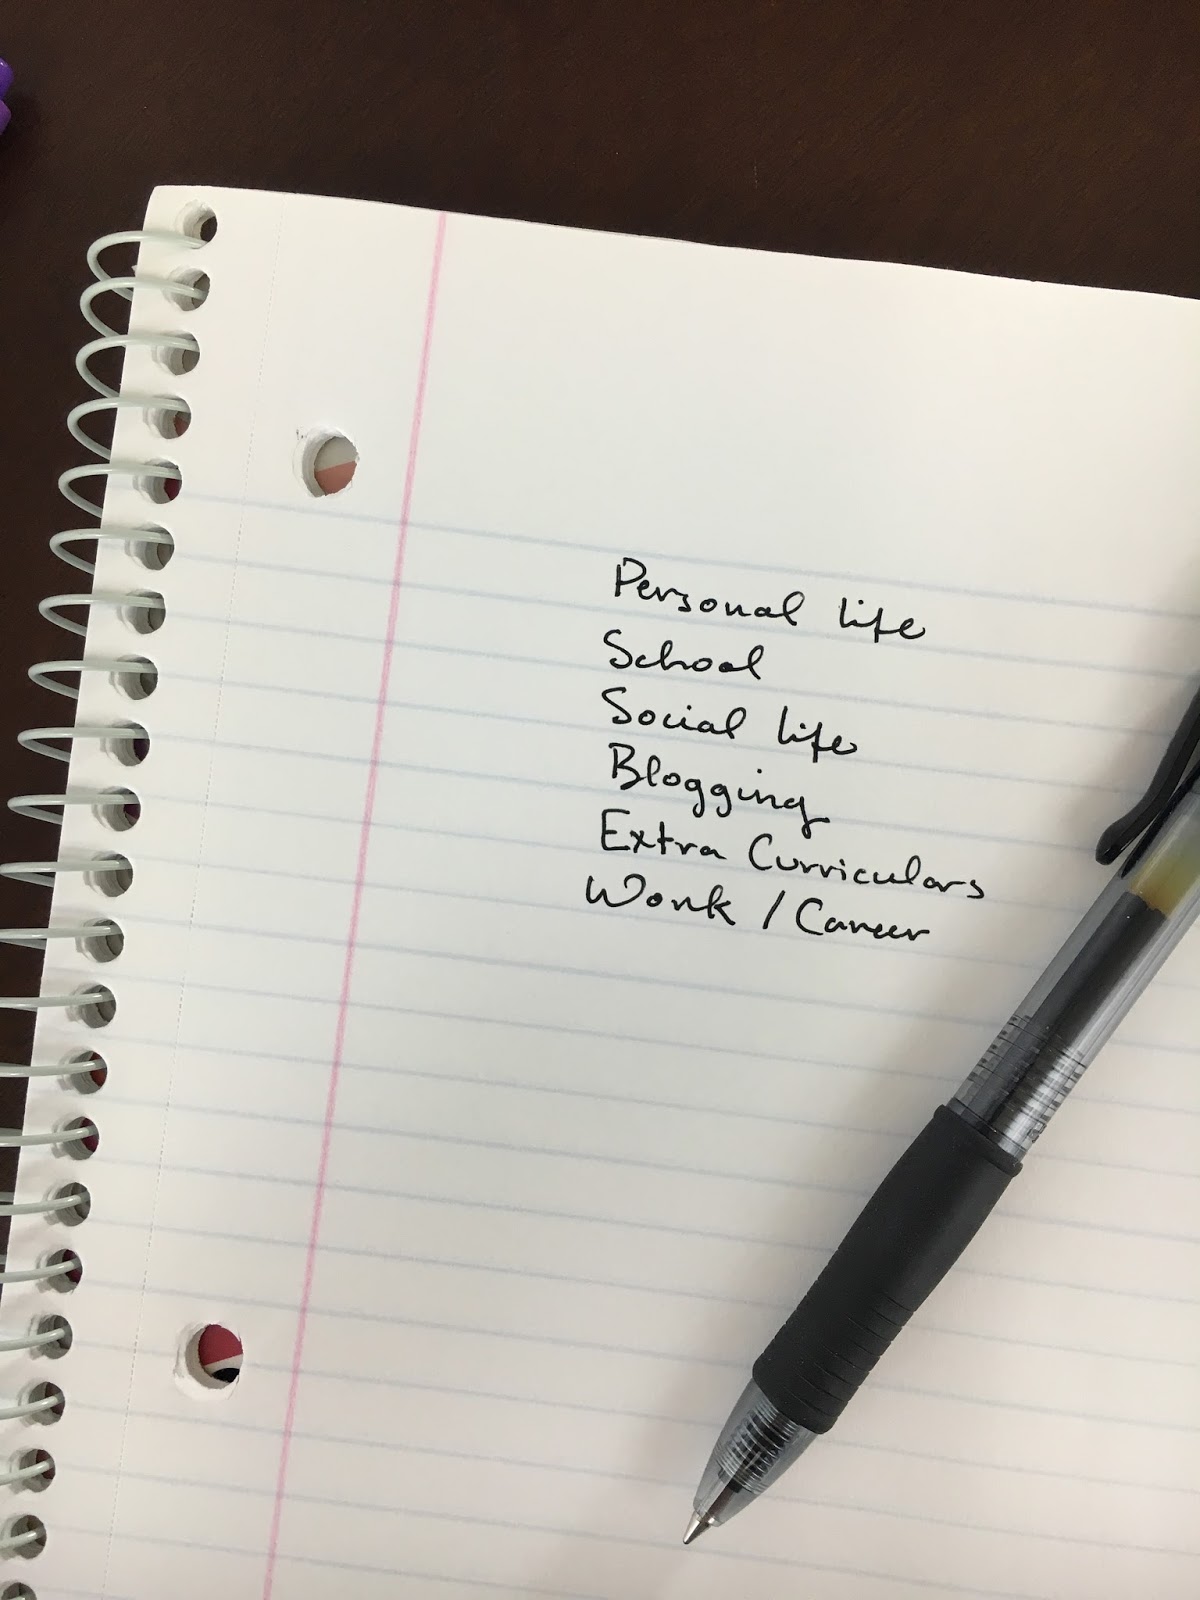 Personal life
School
Social life
Blogging
Extra Curriculars
Work / Career